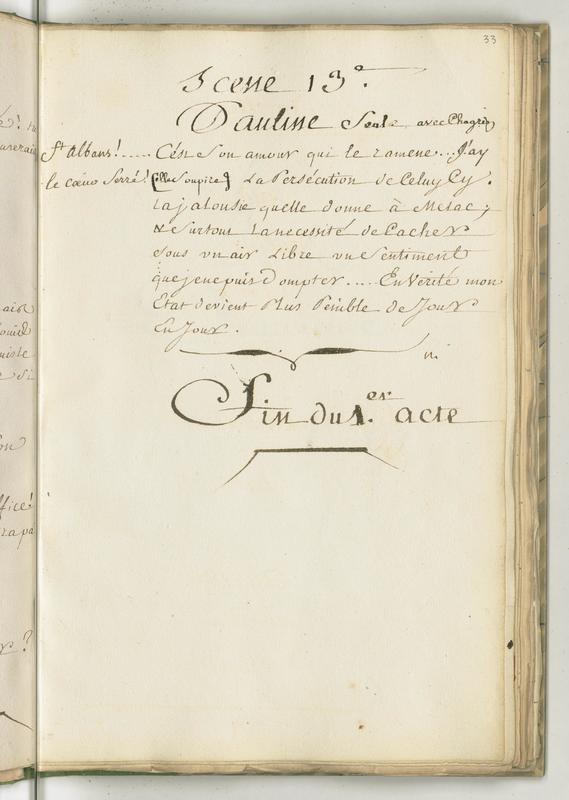 33
Scene 13e.
Pauline Seule avec Chagrin
St Albans!..... C'est Son amour qui le ramene... J'ay
le cœur Serré! [elle Soupire] La Persécution de Celuy Cy.
La jalousie quelle donne à Melac;
& Surtout La necessité de Cacher
Sous un air Libre un Sentiment
que je ne puis Dompter.... En Verité mon
Etat devient Plus Penible de Jour
En Jour.
Fin du 1.er acte